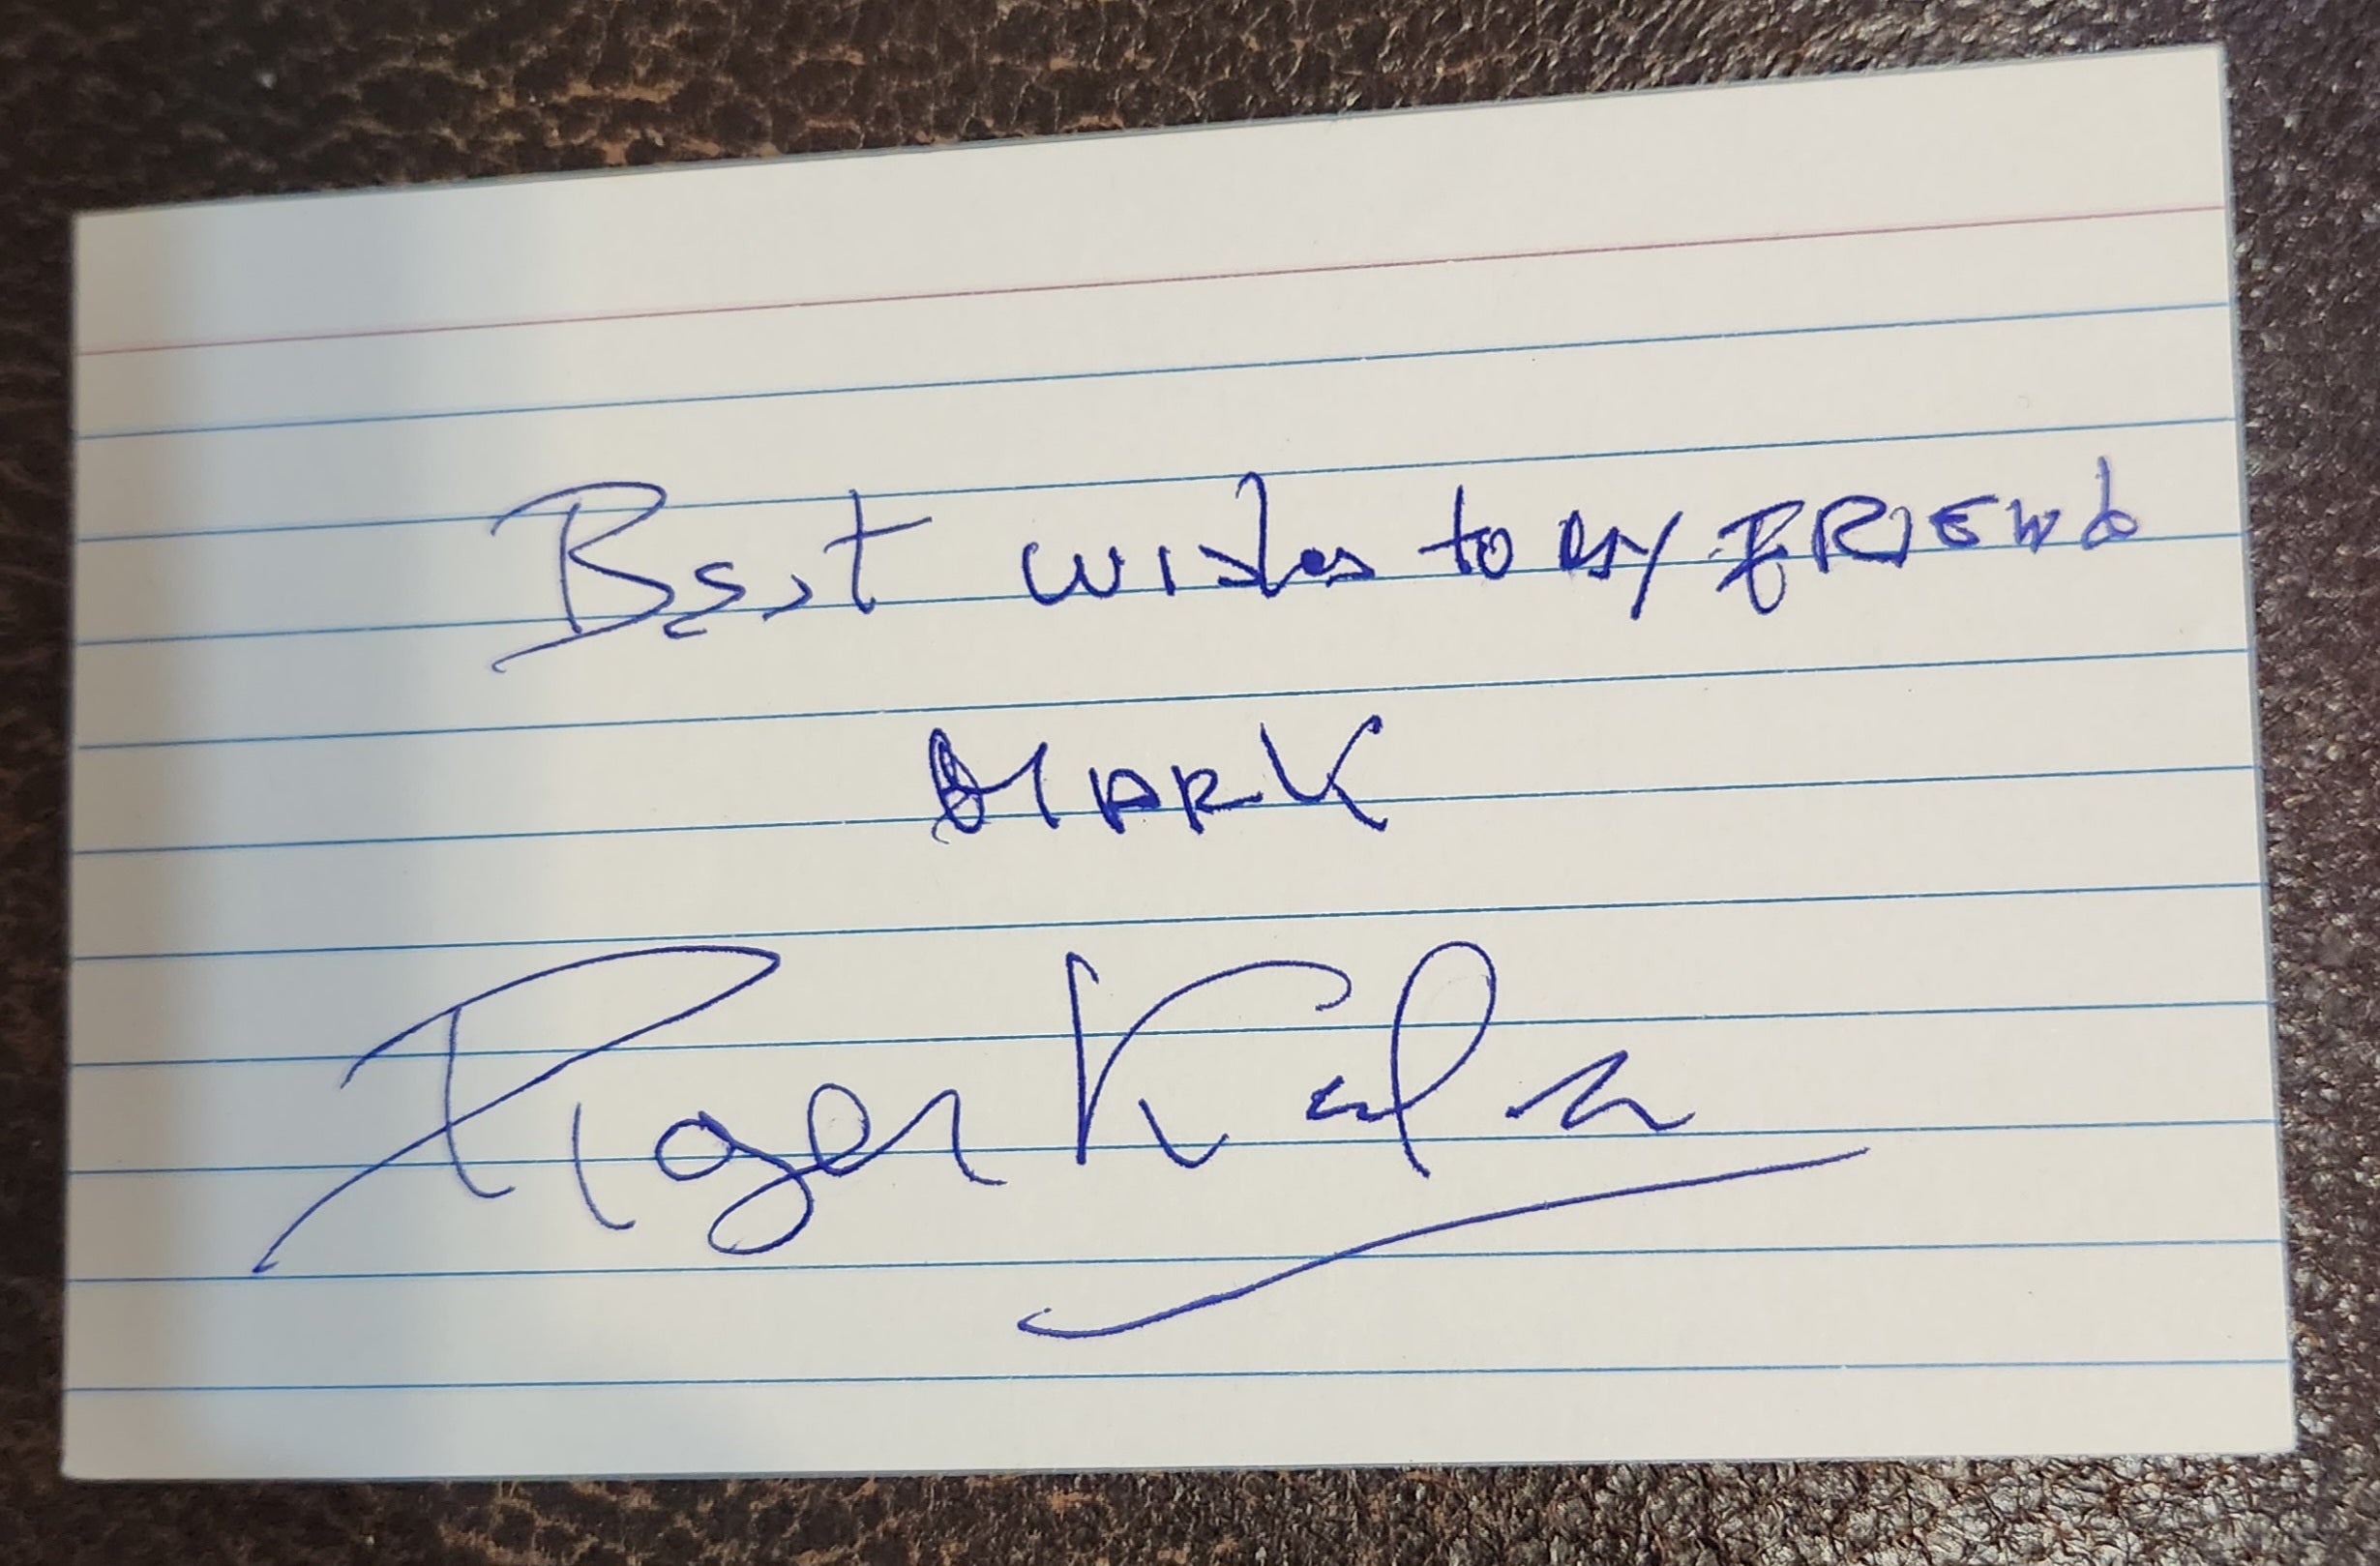 Best wishes to my FRIEND
MARK
Roger